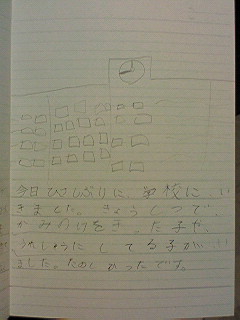 今日ひさしぶりに、学校に、い
きました。きょうしつで、
かみのけをき た子や、
うれしょうにしてる子がい
ました。たのしかったです。